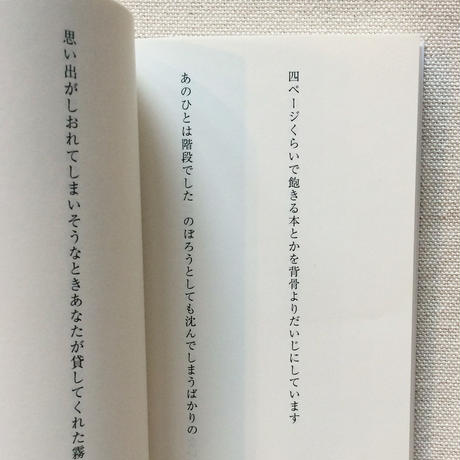 四ページくらいで飽きる本とかを背骨よりだいじにしています
あのひとは階段でした　のぼろうとしても沈んでしまうばかりの
思い出がしおれてしまいそうなときあなたが貸してくれた霧